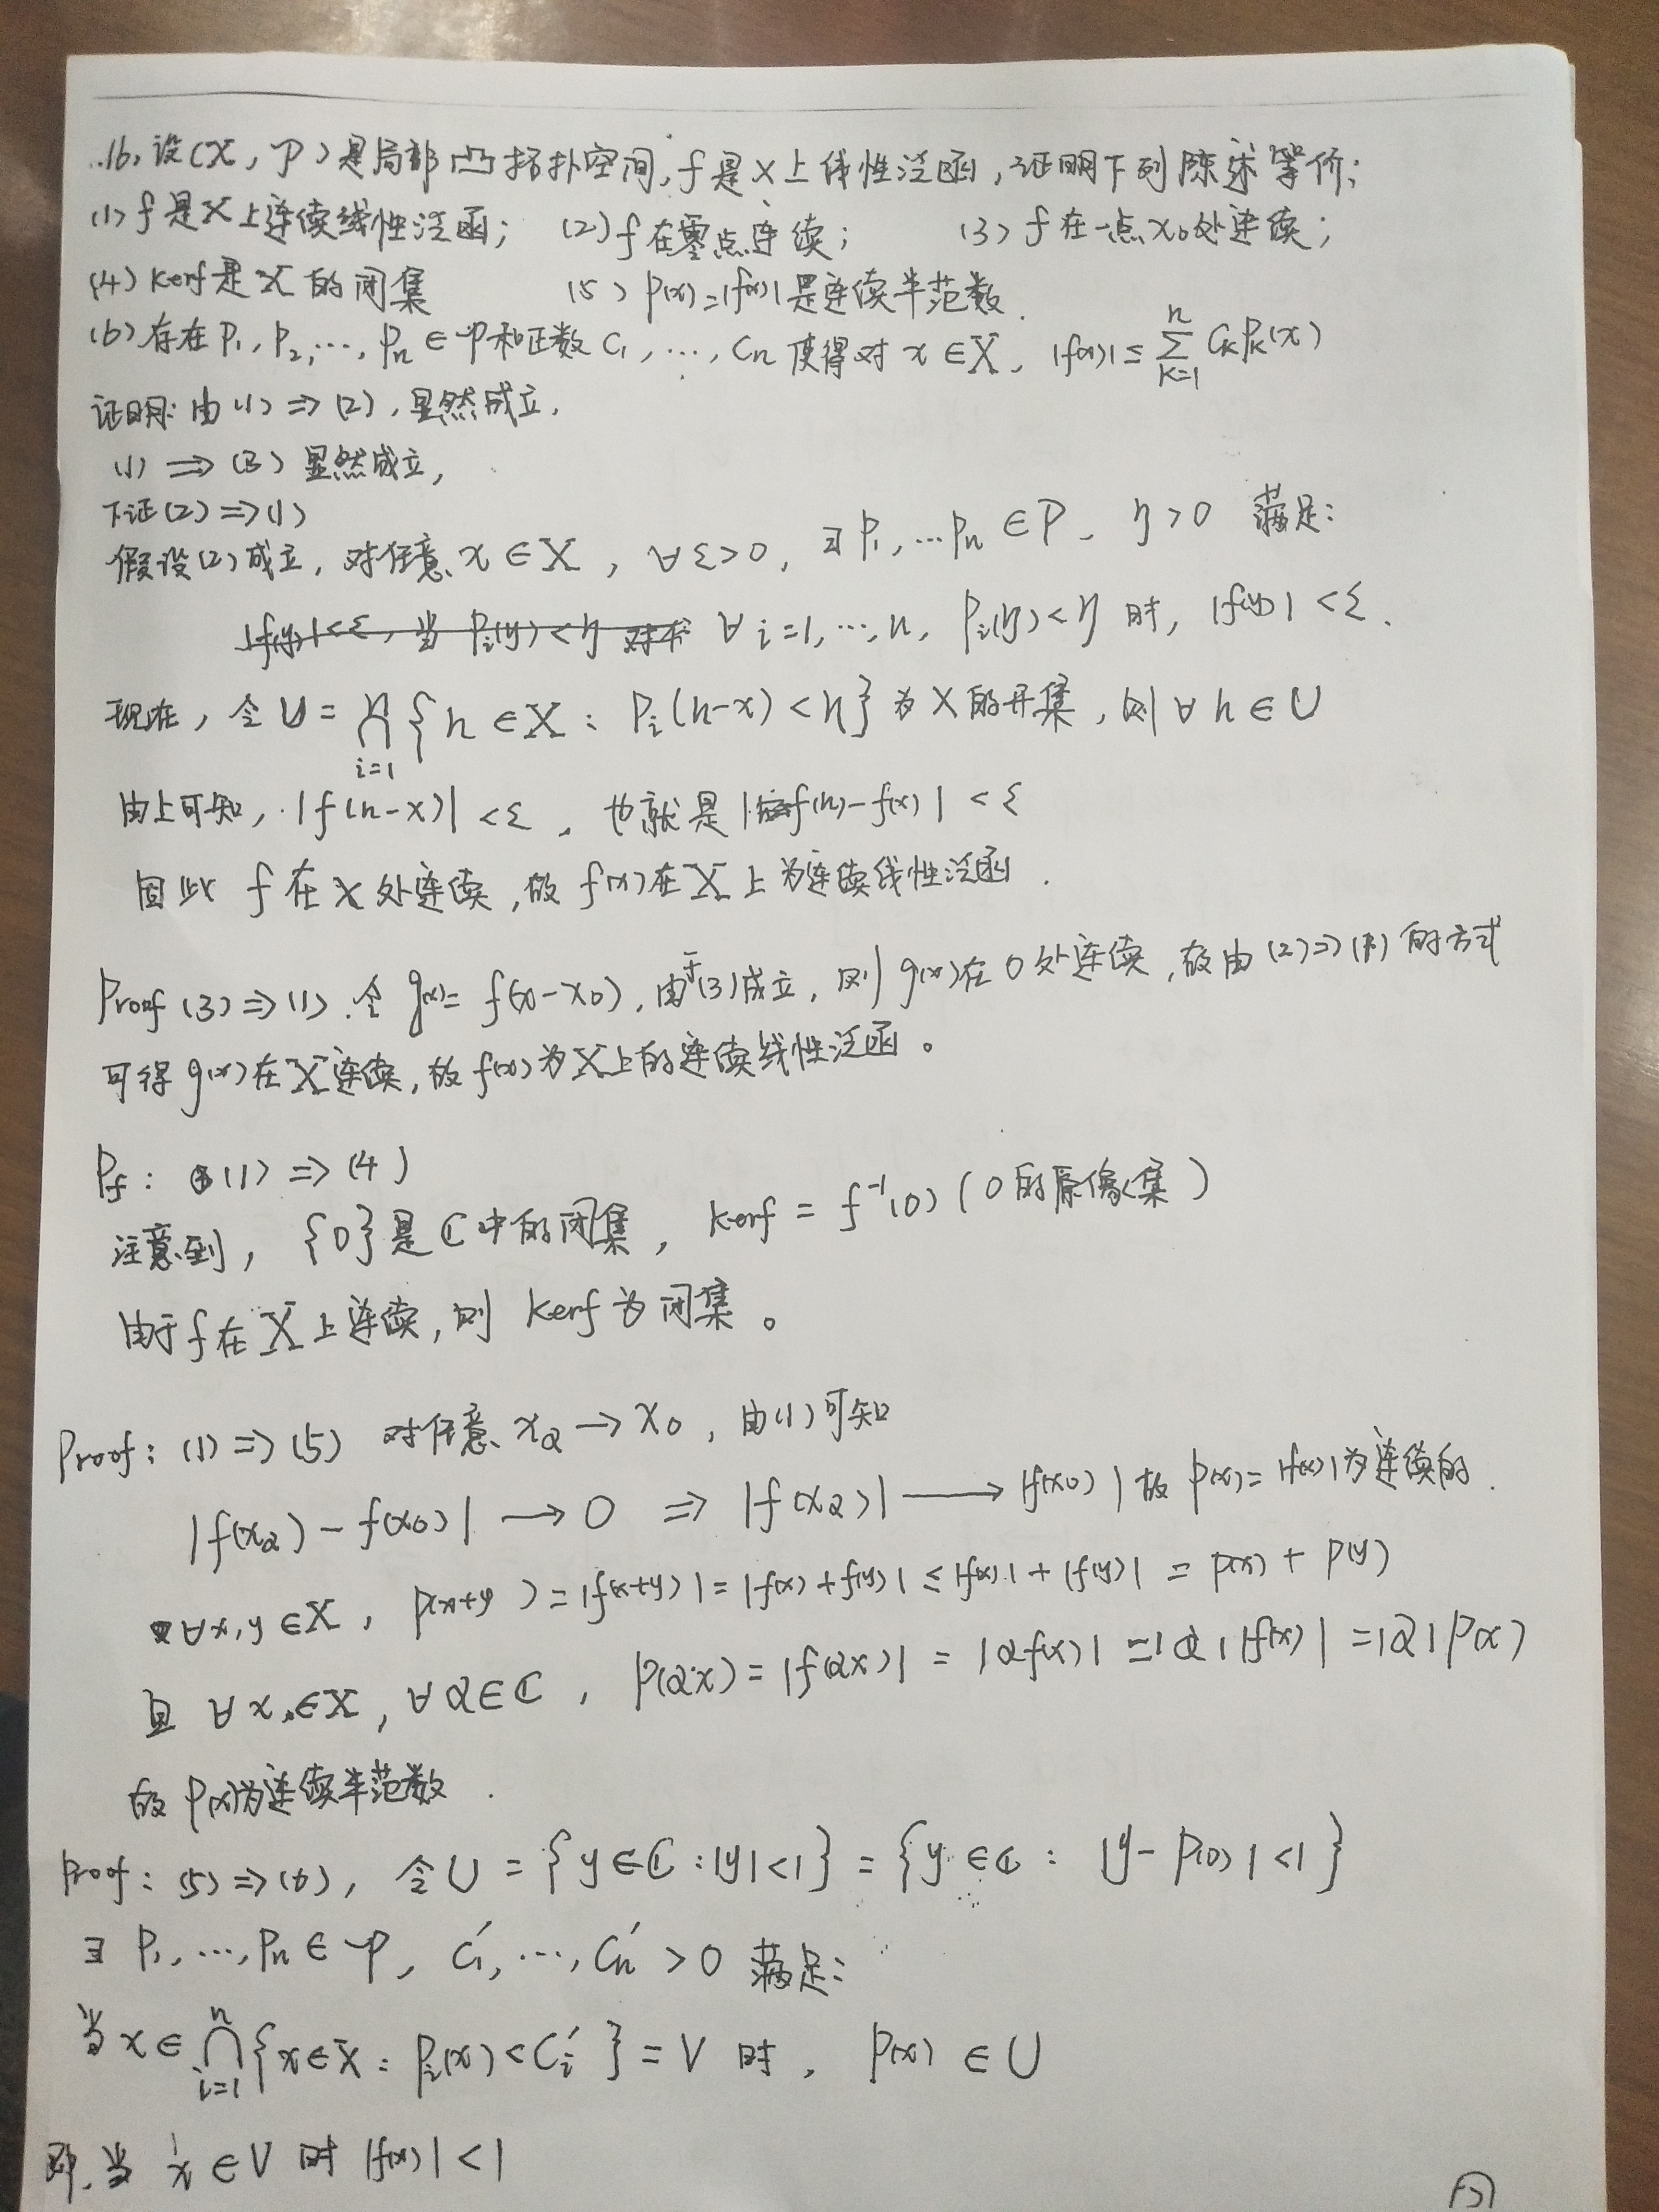 16. 设(X, P)是局部凸拓扑空间, f是X上线性泛函, 证明下列陈述等价:
(1) f是X上连续线性泛函; (2) f在零点连续; (3) f在一点x₀处连续;
(4) kerf是X的闭集 (5) p(x)=|f(x)|是连续半范数.
(6) 存在P₁, P₂, …, Pₙ∈P和正数C₁, …, Cₙ使得对x∈X, |f(x)| ≤ Σ_{k=1}^{n} CₖPₖ(x)
证明: 由(1) ⇒ (2), 显然成立,
(1) ⇒ (3) 显然成立,
下证(2)⇒(1)
假设(2)成立, 对任意x∈X, ∀ε>0, ∃P₁, …Pₙ∈P, η>0 满足:
∀i=1, …, n, Pᵢ(y)<η 时, |f(y)|<ε.
现在, 令U = ⋂_{i=1}^{n} {h∈X: Pᵢ(h-x)<η} 为X的开集, 则∀h∈U
由上可知, |f(h-x)|<ε, 也就是|f(h)-f(x)|<ε
因此 f在x处连续, 故f(x)在X上为连续线性泛函.
Proof (3)⇒(1). 令g(x)= f(x-x₀), 由于(3)成立, 则g(x)在0处连续, 故由(2)⇒(1)的方式
可得g(x)在X连续, 故f(x)为X上的连续线性泛函。
Pf: (1) ⇒ (4)
注意到, {0}是ℂ中的闭集, kerf = f⁻¹(0) (0的原像集)
由于f在X上连续, 则 kerf为闭集。
Proof: (1)⇒(5) 对任意xα→x₀, 由(1)可知
|f(xα)-f(x₀)| → 0 ⇒ |f(xα)| → |f(x₀)| 故p(x)=|f(x)|为连续的.
∀x,y∈X, p(x+y)=|f(x+y)|=|f(x)+f(y)|≤|f(x)|+|f(y)| = p(x)+p(y)
且 ∀x∈X, ∀α∈ℂ, p(αx)=|f(αx)|=|αf(x)|=|α||f(x)|=|α|p(x)
故p(x)为连续半范数.
Proof: (5)⇒(6), 令U = {y∈ℂ: |y|<1} = {y∈ℂ: |y-p(0)|<1}
∃ P₁, …, Pₙ∈P, C₁′, …, Cₙ′>0 满足:
当x∈⋂_{i=1}^{n} {x∈X: Pᵢ(x)<Cᵢ′} = V 时, p(x)∈U
即, 当 x∈V 时 |f(x)|<1